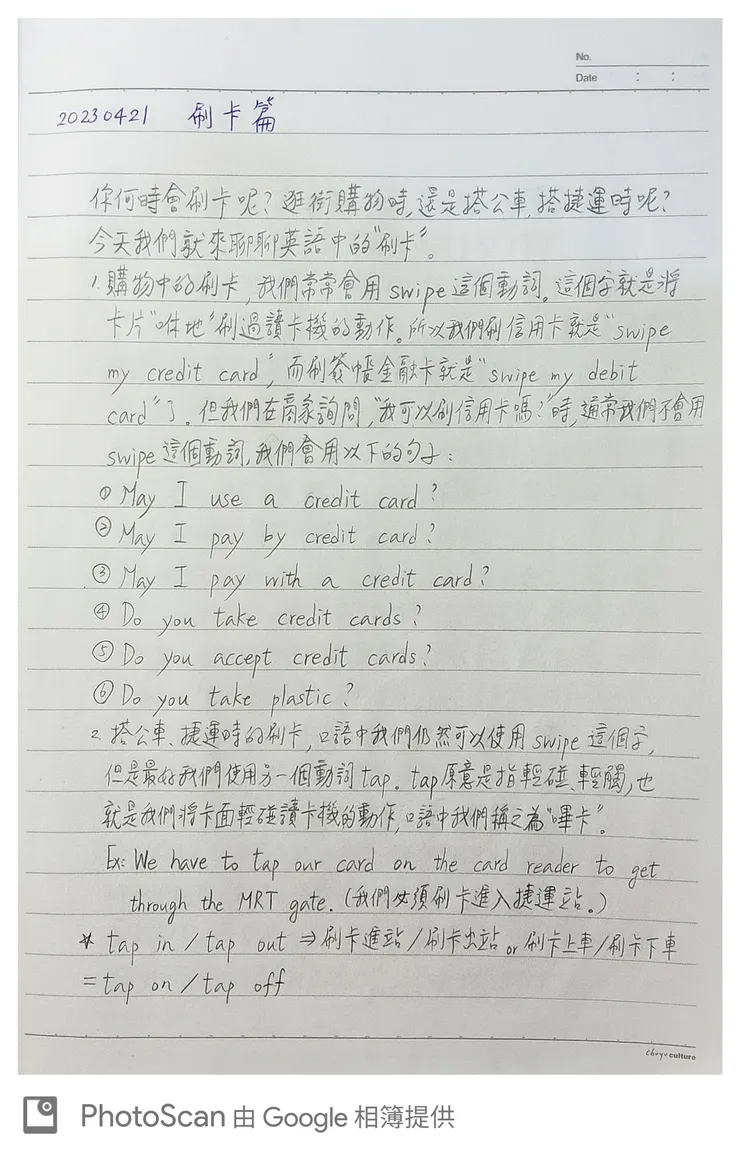 No.
Date : :
20230421 刷卡篇
你何時會刷卡呢？逛街購物時,還是搭公車,搭捷運時呢？
今天我們就來聊聊英語中的"刷卡"。
1.購物中的刷卡,我們常常會用 swipe 這個動詞。這個字就是將
卡片"咻地"刷過讀卡機的動作。所以我們刷信用卡就是"swipe
my credit card",而刷簽帳金融卡就是"swipe my debit
card"了。但我們在商家詢問,"我可以刷信用卡嗎？"時,通常我們不會用
swipe 這個動詞,我們會用以下的句子：
① May I use a credit card?
② May I pay by credit card?
③ May I pay with a credit card?
④ Do you take credit cards?
⑤ Do you accept credit cards?
⑥ Do you take plastic?
2. 搭公車、捷運時的刷卡,口語中我們仍然可以使用 swipe 這個字,
但是最好我們使用另一個動詞 tap。tap原意是指輕碰、輕觸,也
就是我們將卡面輕碰讀卡機的動作,口語中我們稱之為"嗶卡"。
Ex: We have to tap our card on the card reader to get
through the MRT gate.(我們必須刷卡進入捷運站。)
* tap in / tap out ⇒刷卡進站/刷卡出站 or 刷卡上車/刷卡下車
= tap on / tap off
culture
PhotoScan 由 Google 相簿提供